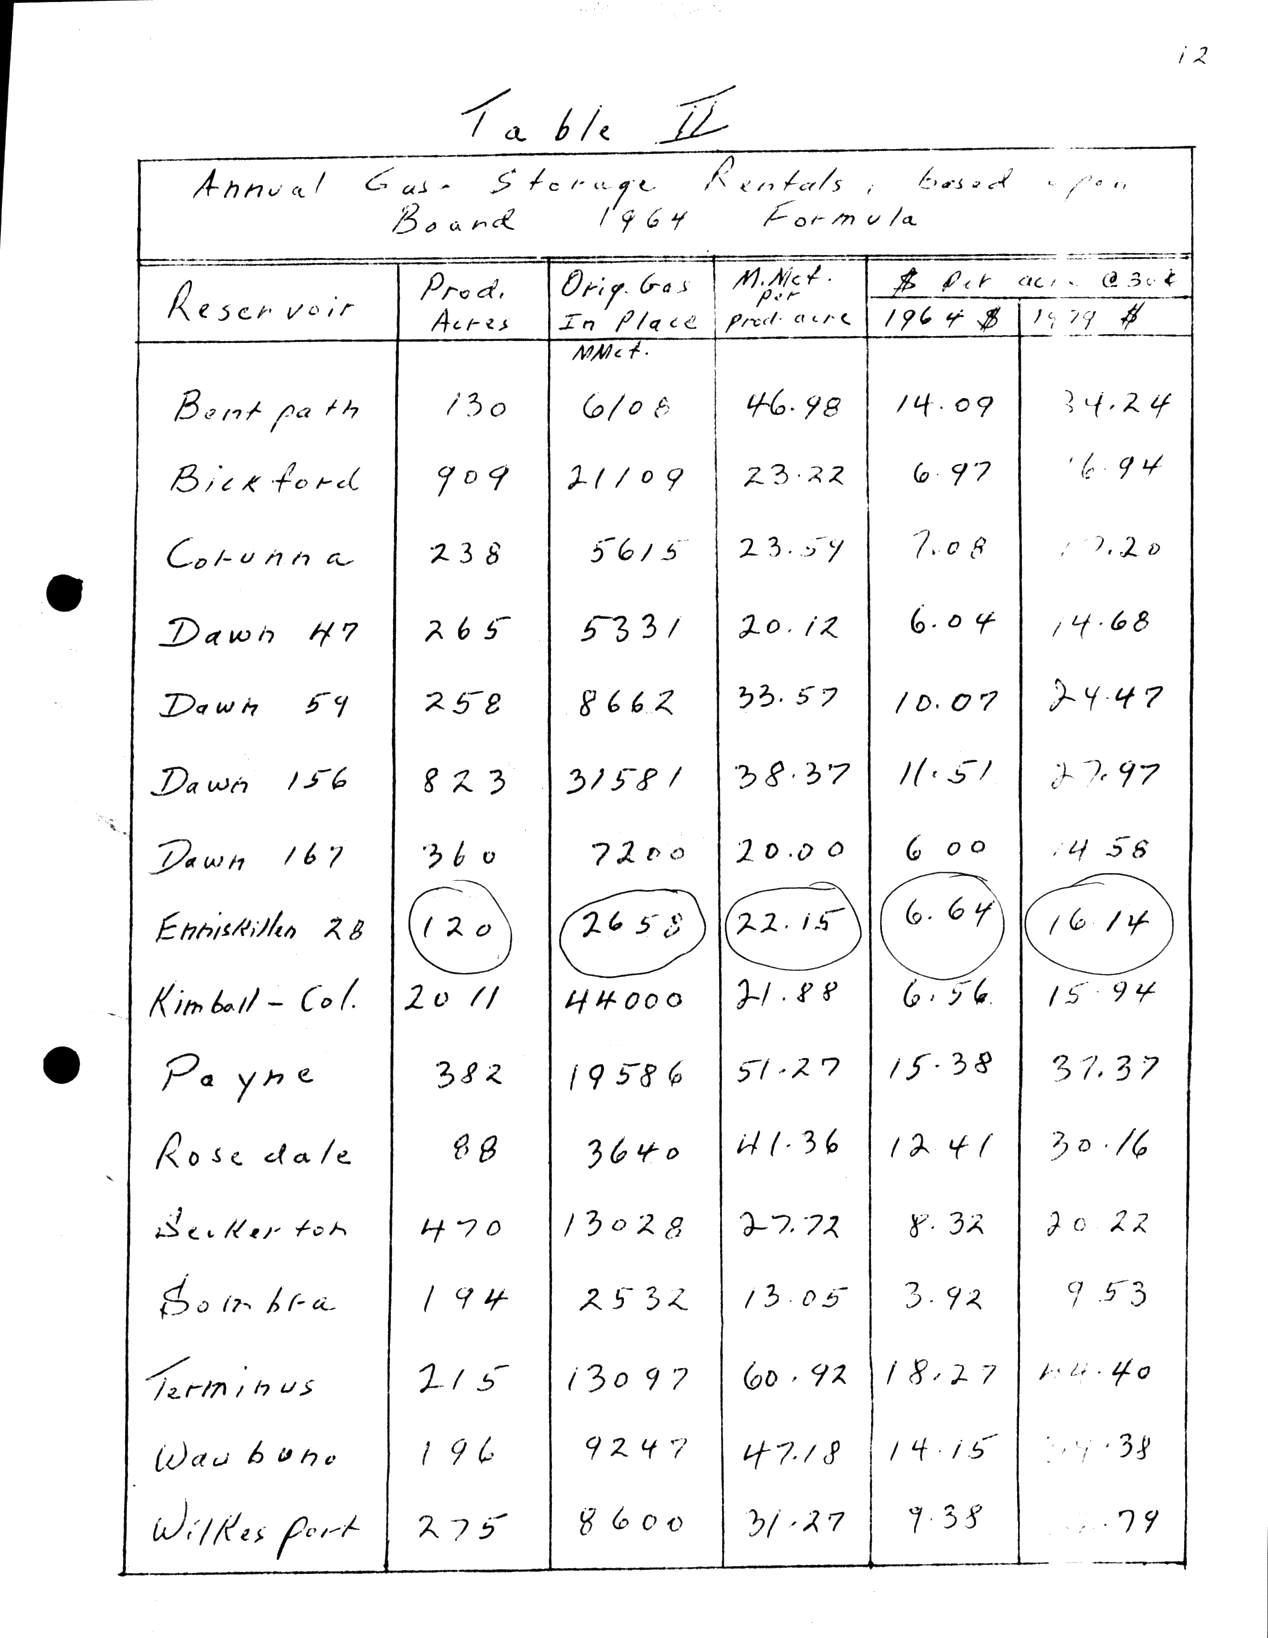 12
Table II
Annual Gas- Storage Rentals, based upon
Board 1964 Formula
Reservoir Prod. Acres Orig. Gas In Place M.Mcf. per prod. acre $ per acre @ 30¢ 1964 $ 1979 $
MMcf.
Bentpath 130 6108 46.98 14.09 34.24
Bickford 909 21109 23.22 6.97 16.94
Corunna 238 5615 23.59 7.08 17.20
Dawn 47 265 5331 20.12 6.04 14.68
Dawn 59 258 8662 33.57 10.07 24.47
Dawn 156 823 31581 38.37 11.51 27.97
Dawn 167 360 7200 20.00 6 00 14 58
Enniskillen 28 120 2658 22.15 6.64 16 14
Kimball - Col. 2011 44000 21.88 6.56 15 94
Payne 382 19586 51.27 15.38 37.37
Rosedale 88 3640 41.36 12 41 30.16
Seckerton 470 13028 27.72 8.32 20 22
Sombra 194 2532 13.05 3.92 9 53
Terminus 215 13097 60.92 18.27 44.40
Waubuno 196 9247 47.18 14.15 34.38
Wilkesport 275 8600 31.27 9.38 .79